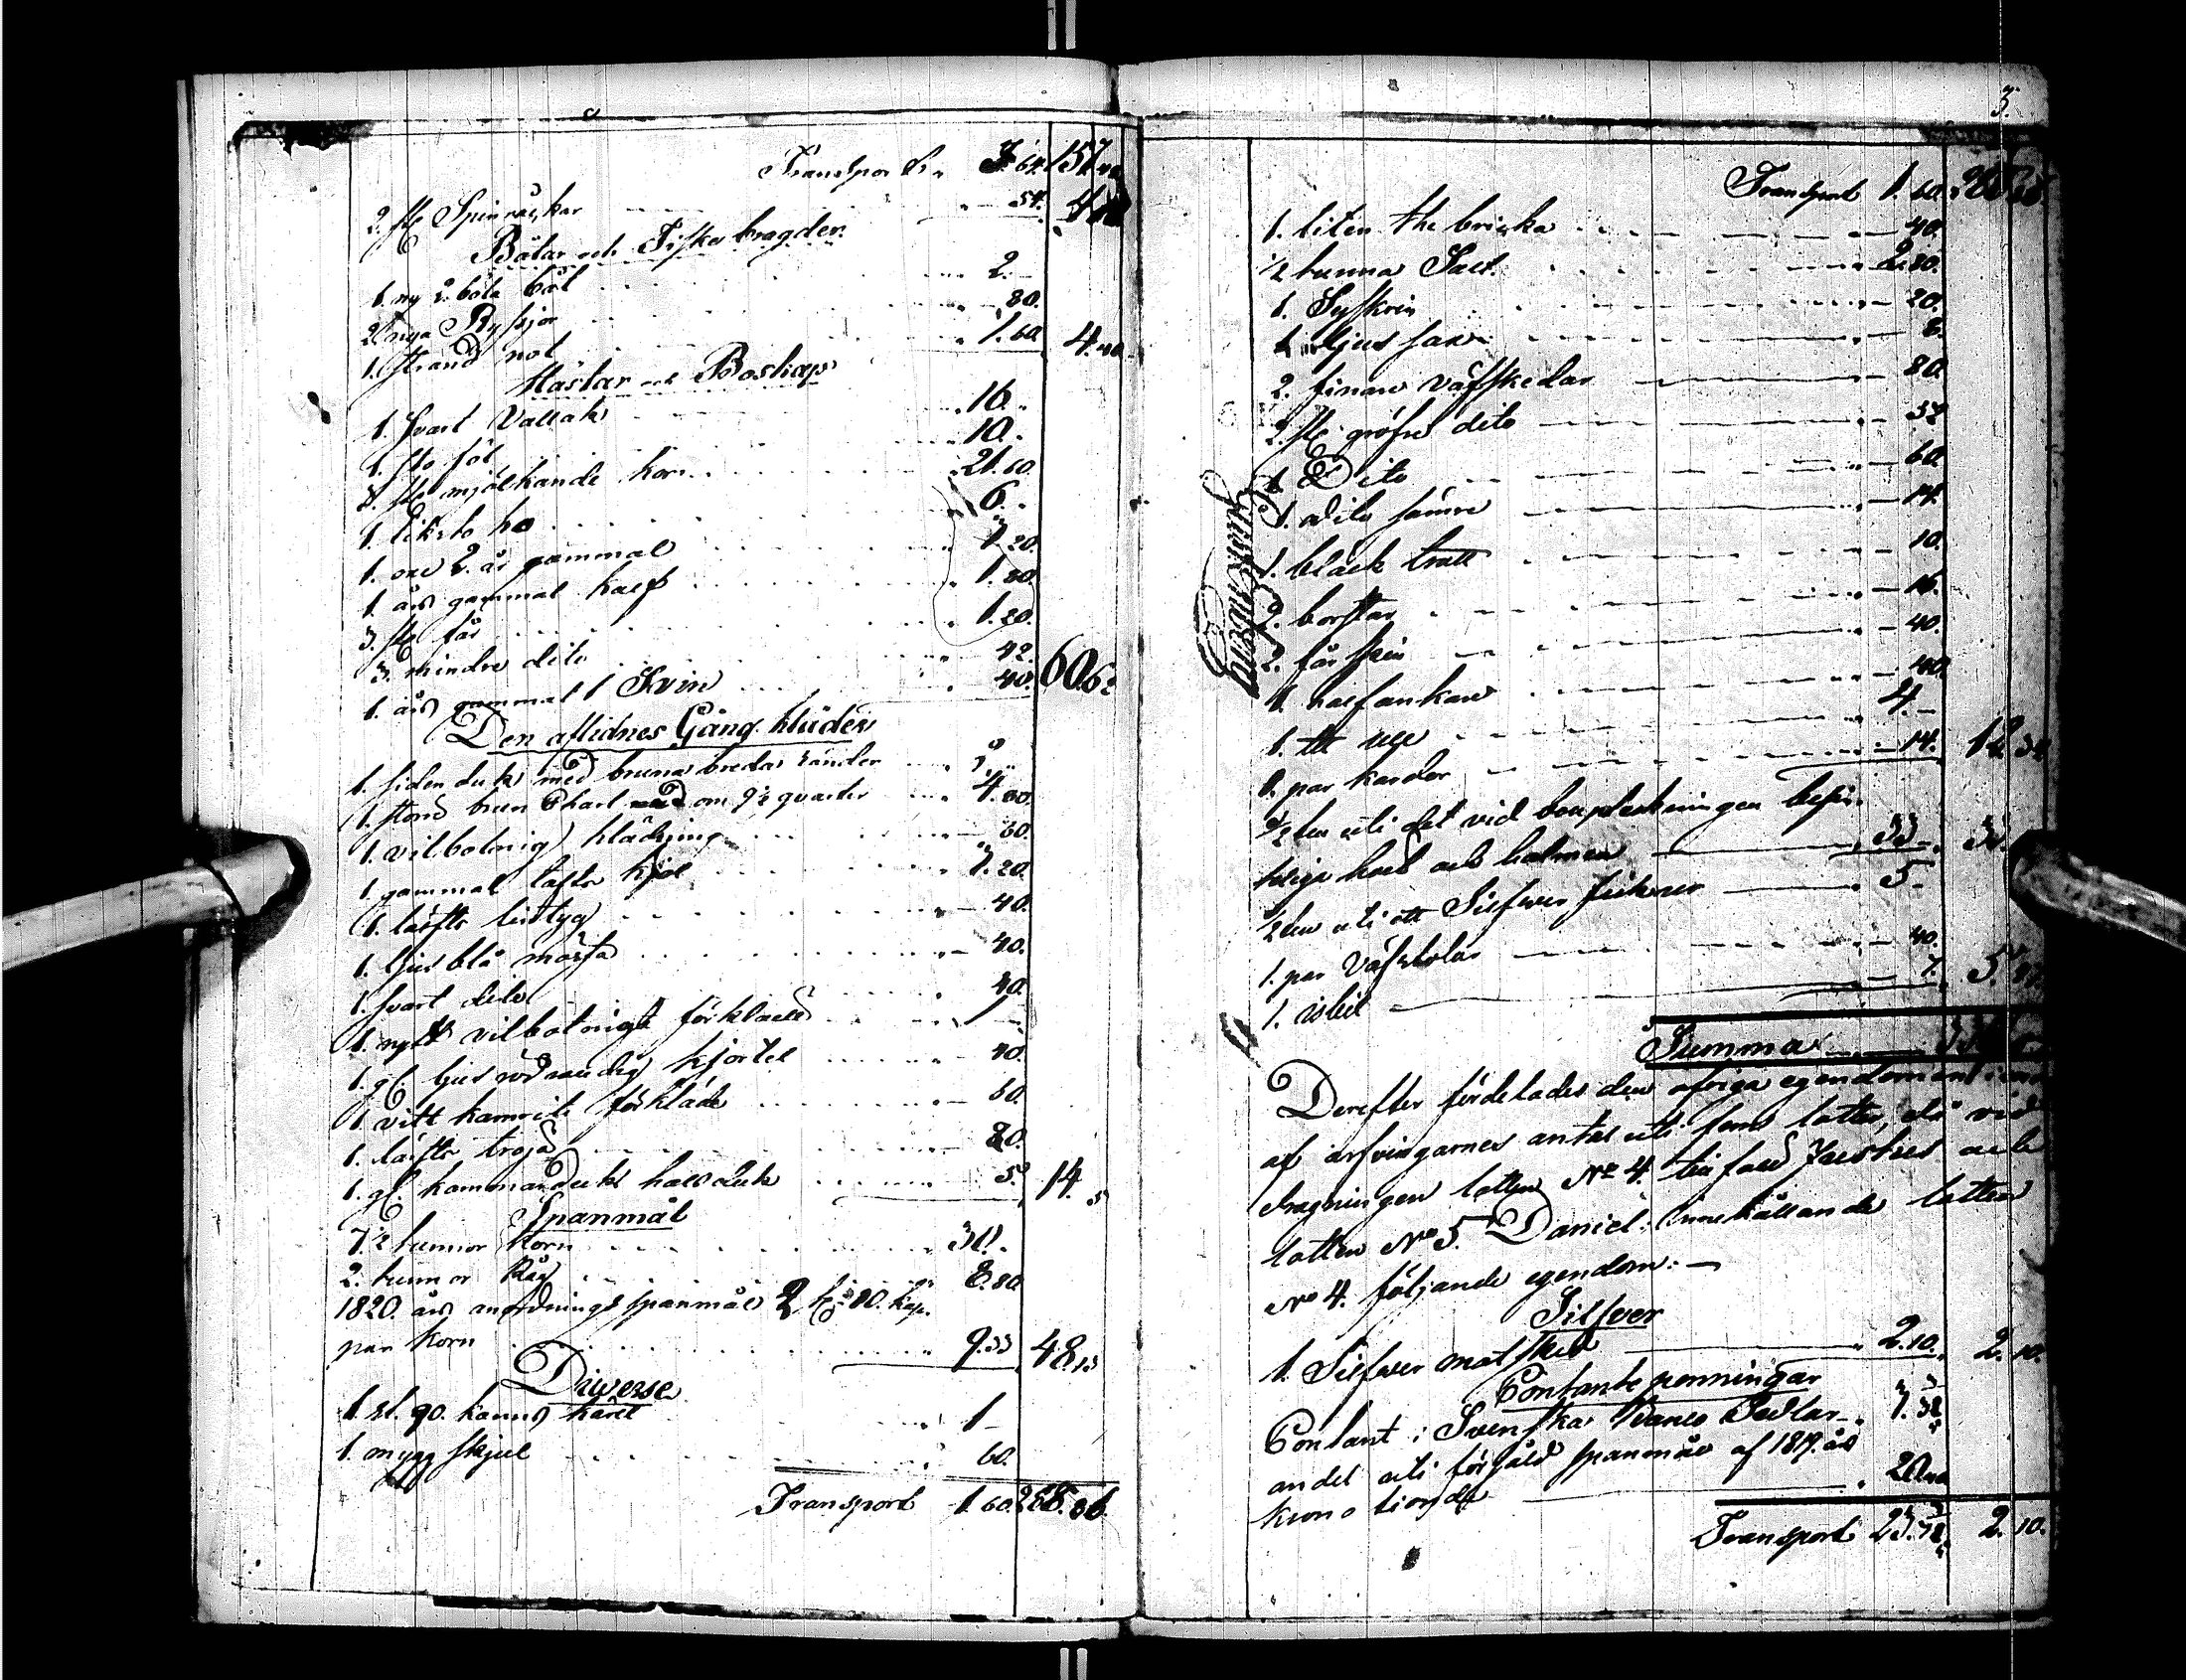 Transport 3.64. 157.
2. st. Spinråckar 54.
Båtar och Fiske bragder
1. ny 2. båla båt 2.
2. nya Ryssjor 80.
1. strand not 1.60. 4.40
Hästar och Boskap
1. svart Vallack 16.
1. sto föl 10.
8. st. mjölkande kor 21.60.
1. 6.
1. oxe 2. år gammal 20.
1. års gammal kalf 1.80.
3. st. får 1.20.
3. mindre dito 42.
1. års gammalt Svin 40. 60.62
Den aflidnes Gång kläder
1. siden duk med bruna breda ränder
1. stor brun Charl om 9½ quarter 4.80.
1. vilbotnig klädning 60.
1. gammal tafts kjol 20.
1. läfts lintyg 40.
1. ljus blå mössa 40.
1. svart dito 40.
1. nytt vilbotnigt förkläde 1
1. gl. ljus rödrandig kjortel 40.
1 vitt kamrits förkläde 60.
1. läfts troja 20.
1. gl. kammarduks halsduk 5. 14.
Spanmål
7½ tunnor Korn 30.
2. tunnor Råg 8.80
1820. års anordnings spanmål 2 80. kap.
par korn 9.33 48.13
Diverse
1. st. 90. kanns käril 1
1. mygg skjul 60.
Transport 1.60. 288.06.
3.
Transport 1.60.
1. liten the bricka 40.
½ tunna Salt 2.80.
1. Syskrin 20.
1 ljus sax 8.
2. finare väfskedar 80.
2. st. gröfre dito 32
1 Dito 60.
1. dito sämre 14.
1. bläck tratt 10.
2. borstar 16.
2. får skin 40.
1. halfankare 40.
1. ur 4.
1. par kardor 14. 12.34
½ten uti det vid bouptekningen befin-
teliga höet och halmen 33 33.
½ten uti ett Silfver 5.
1. par Väfstolar 40.
1. isbil 7. 5.
Summa
Derefter fördelades den öfriga egendomen
af arfvingarnes antal uti fem lotter, då vid
dragningen lotten No 4. tillföll och
lotten No 5. Daniel: Innehållande lotten
No 4. följande egendom:
Silfver
1. Silfver matsked 2.10. 2.10.
Contante penningar
Contant i Svenska Banco Sedlar
andel uti försåld spanmål af 1819. års
krono tionde
Transport 2.10.